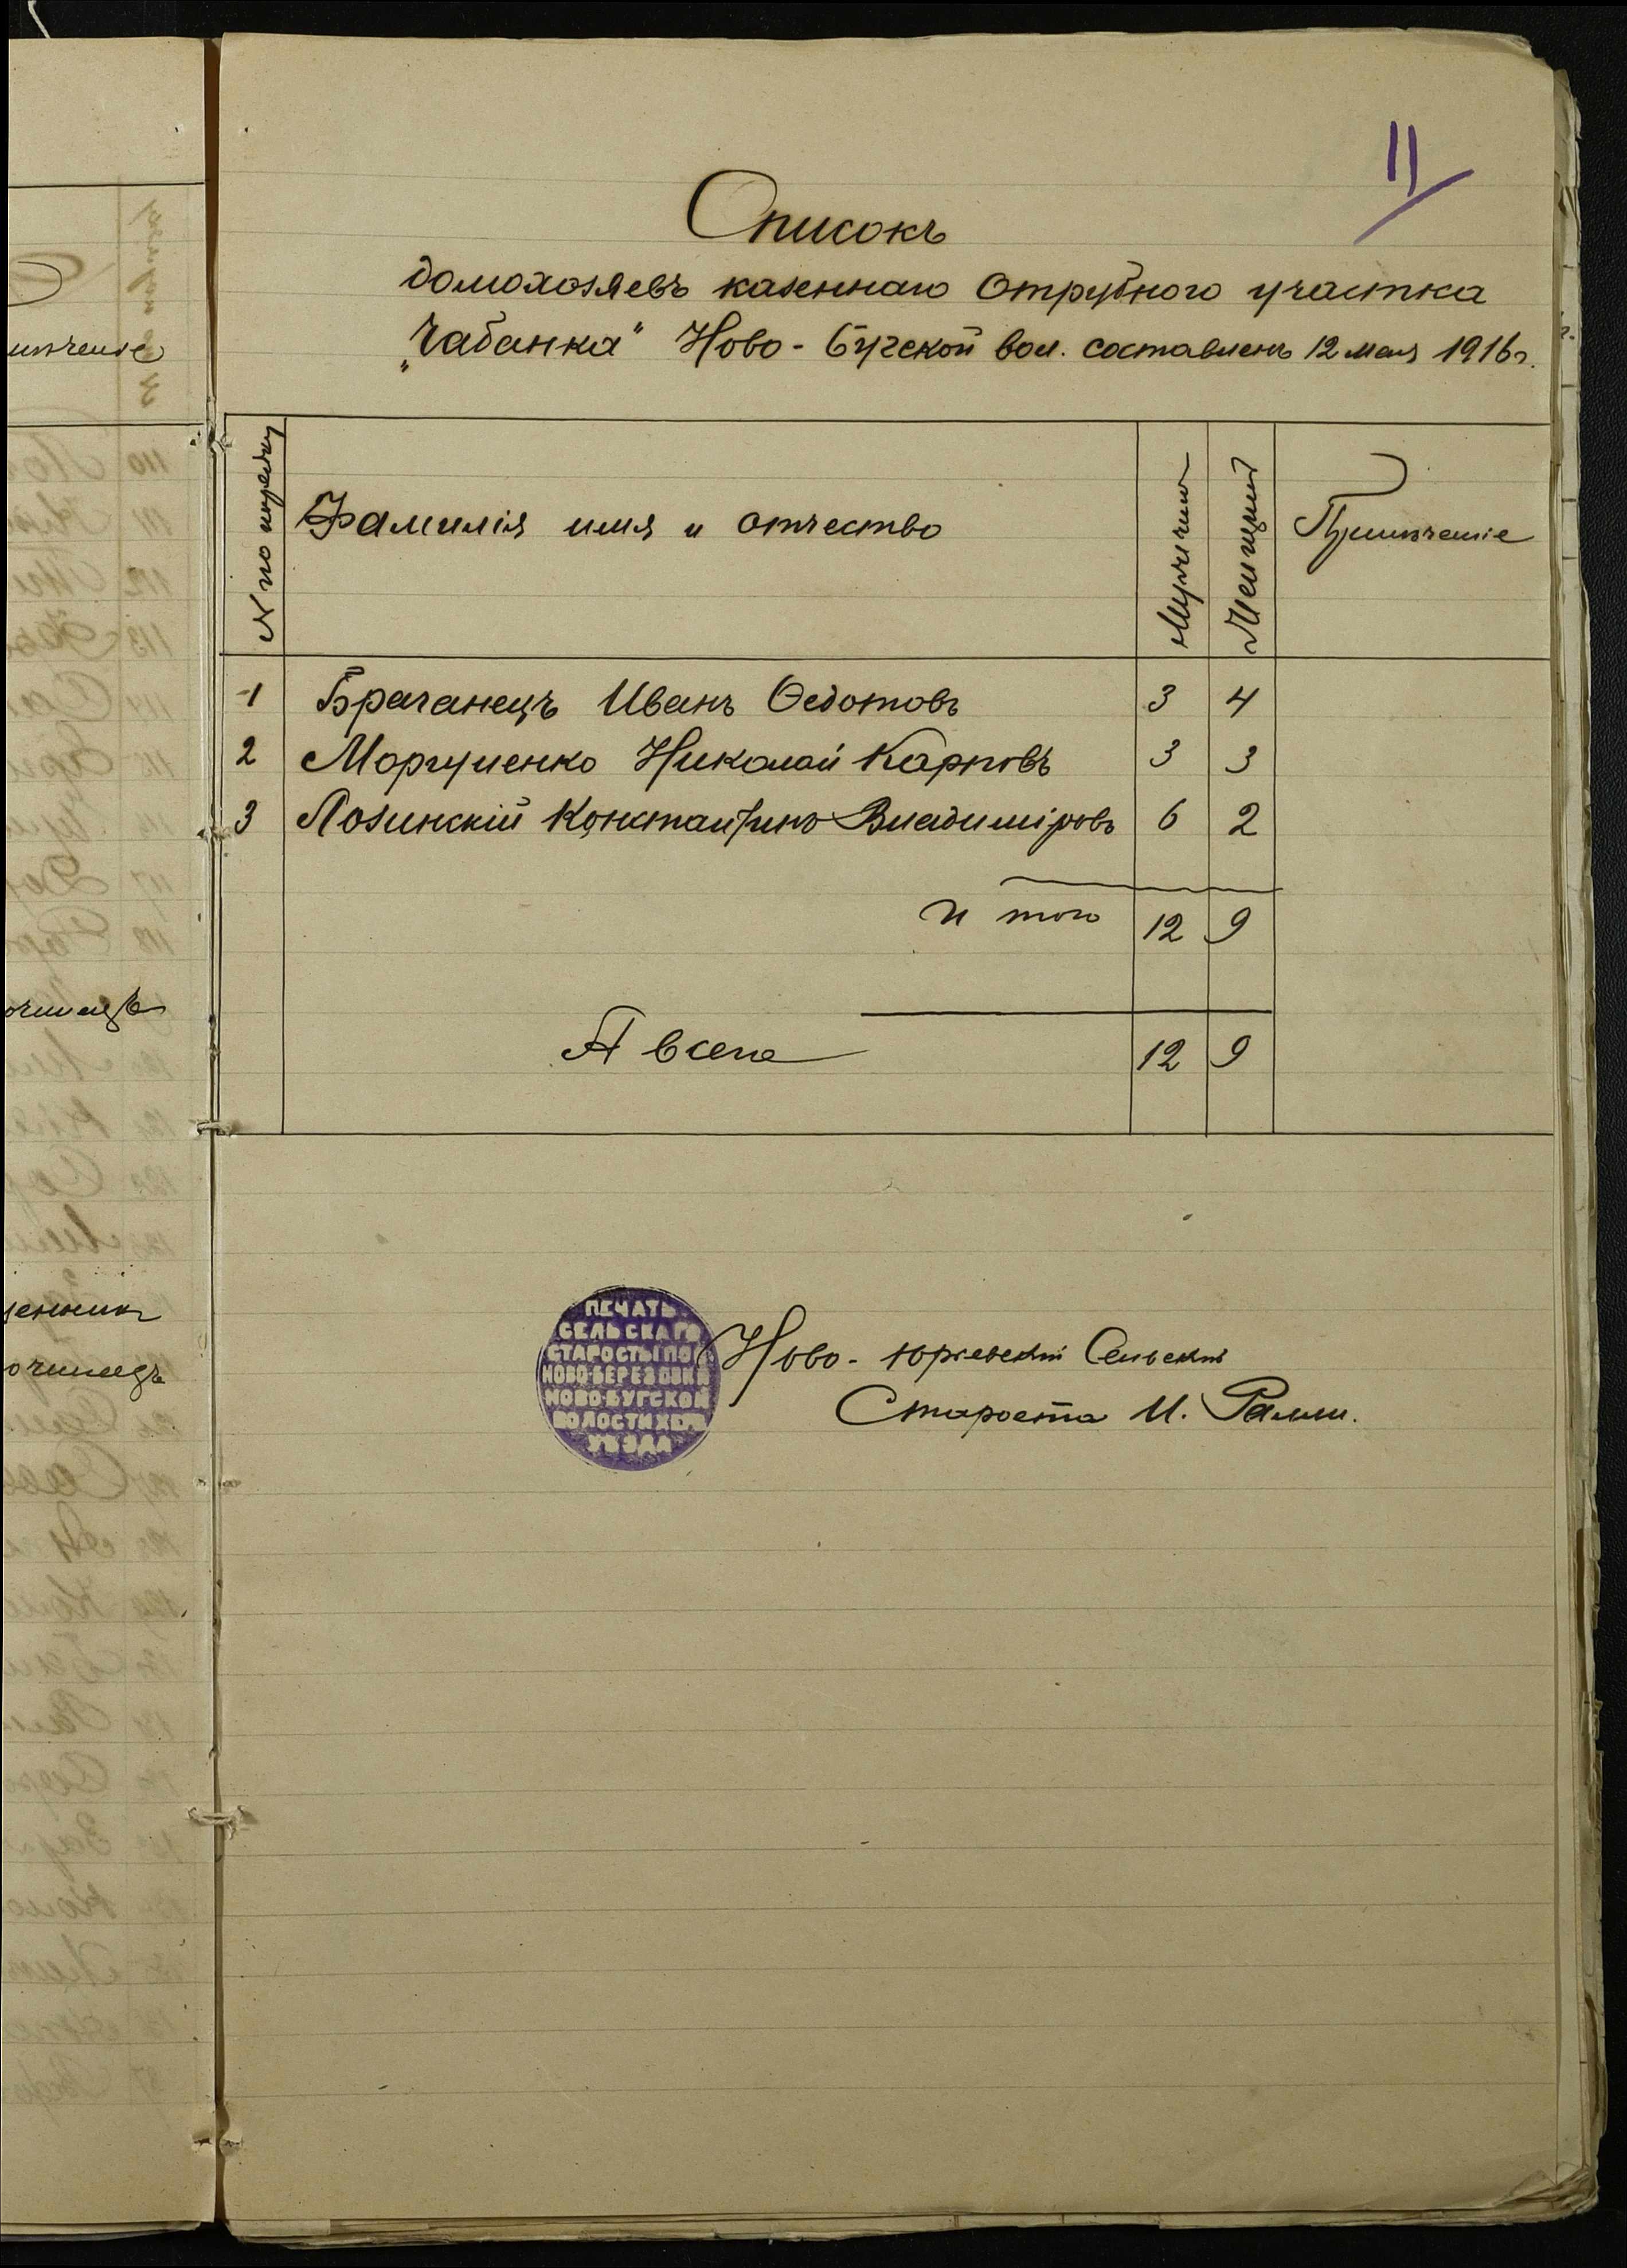 11
Списокъ
домохозяевъ казеннаго отрубного участка
„Чабанка" Ново-Бугской вол. составленъ 12 мая 1916 г.
№ по порядку | Фамилія имя и отчество | Мужчинъ | Женщинъ | Примѣчаніе
1 Брачанецъ Иванъ Ѳедотовъ 3 4
2 Моргуненко Николай Карповъ 3 3
3 Лозинскій Константинъ Владиміровъ 6 2
И того 12 9
А всего 12 9
ПЕЧАТЬ
СЕЛЬСКАГО
СТАРОСТЫ ПОС.
НОВО-БЕРЕЗОВКИ
НОВО-БУГСКОЙ
ВОЛОСТИ ХЕРС.
УѢЗДА
Ново-Юрьевскій Сельскій
Староста И.